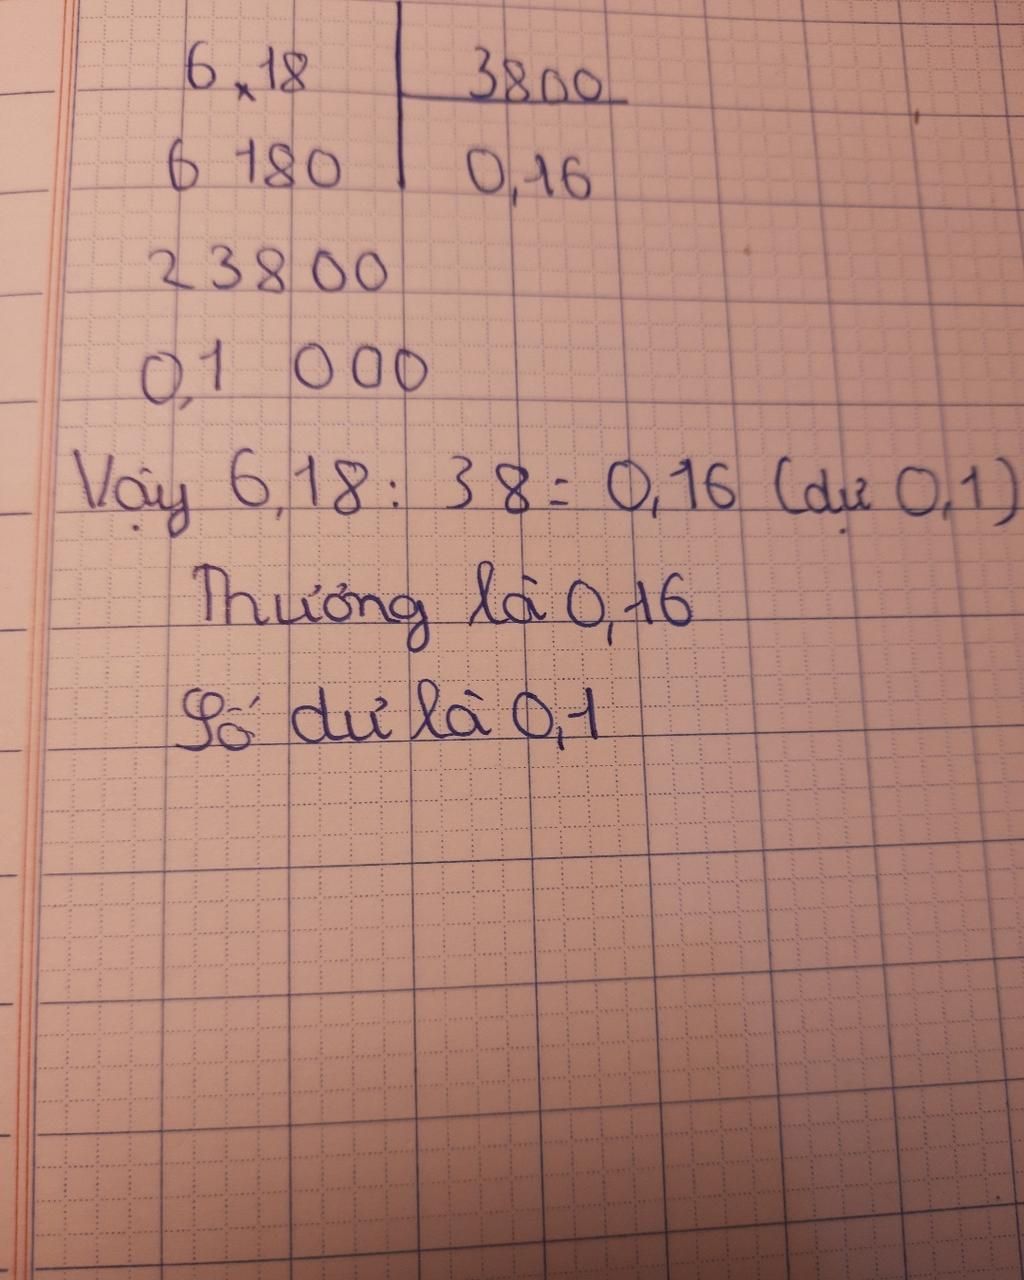 6,18 3800
6 180 0,16
23800
0,1 000
Vậy 6,18 : 38 = 0,16 (dư 0,1)
Thương là 0,16
Số dư là 0,1